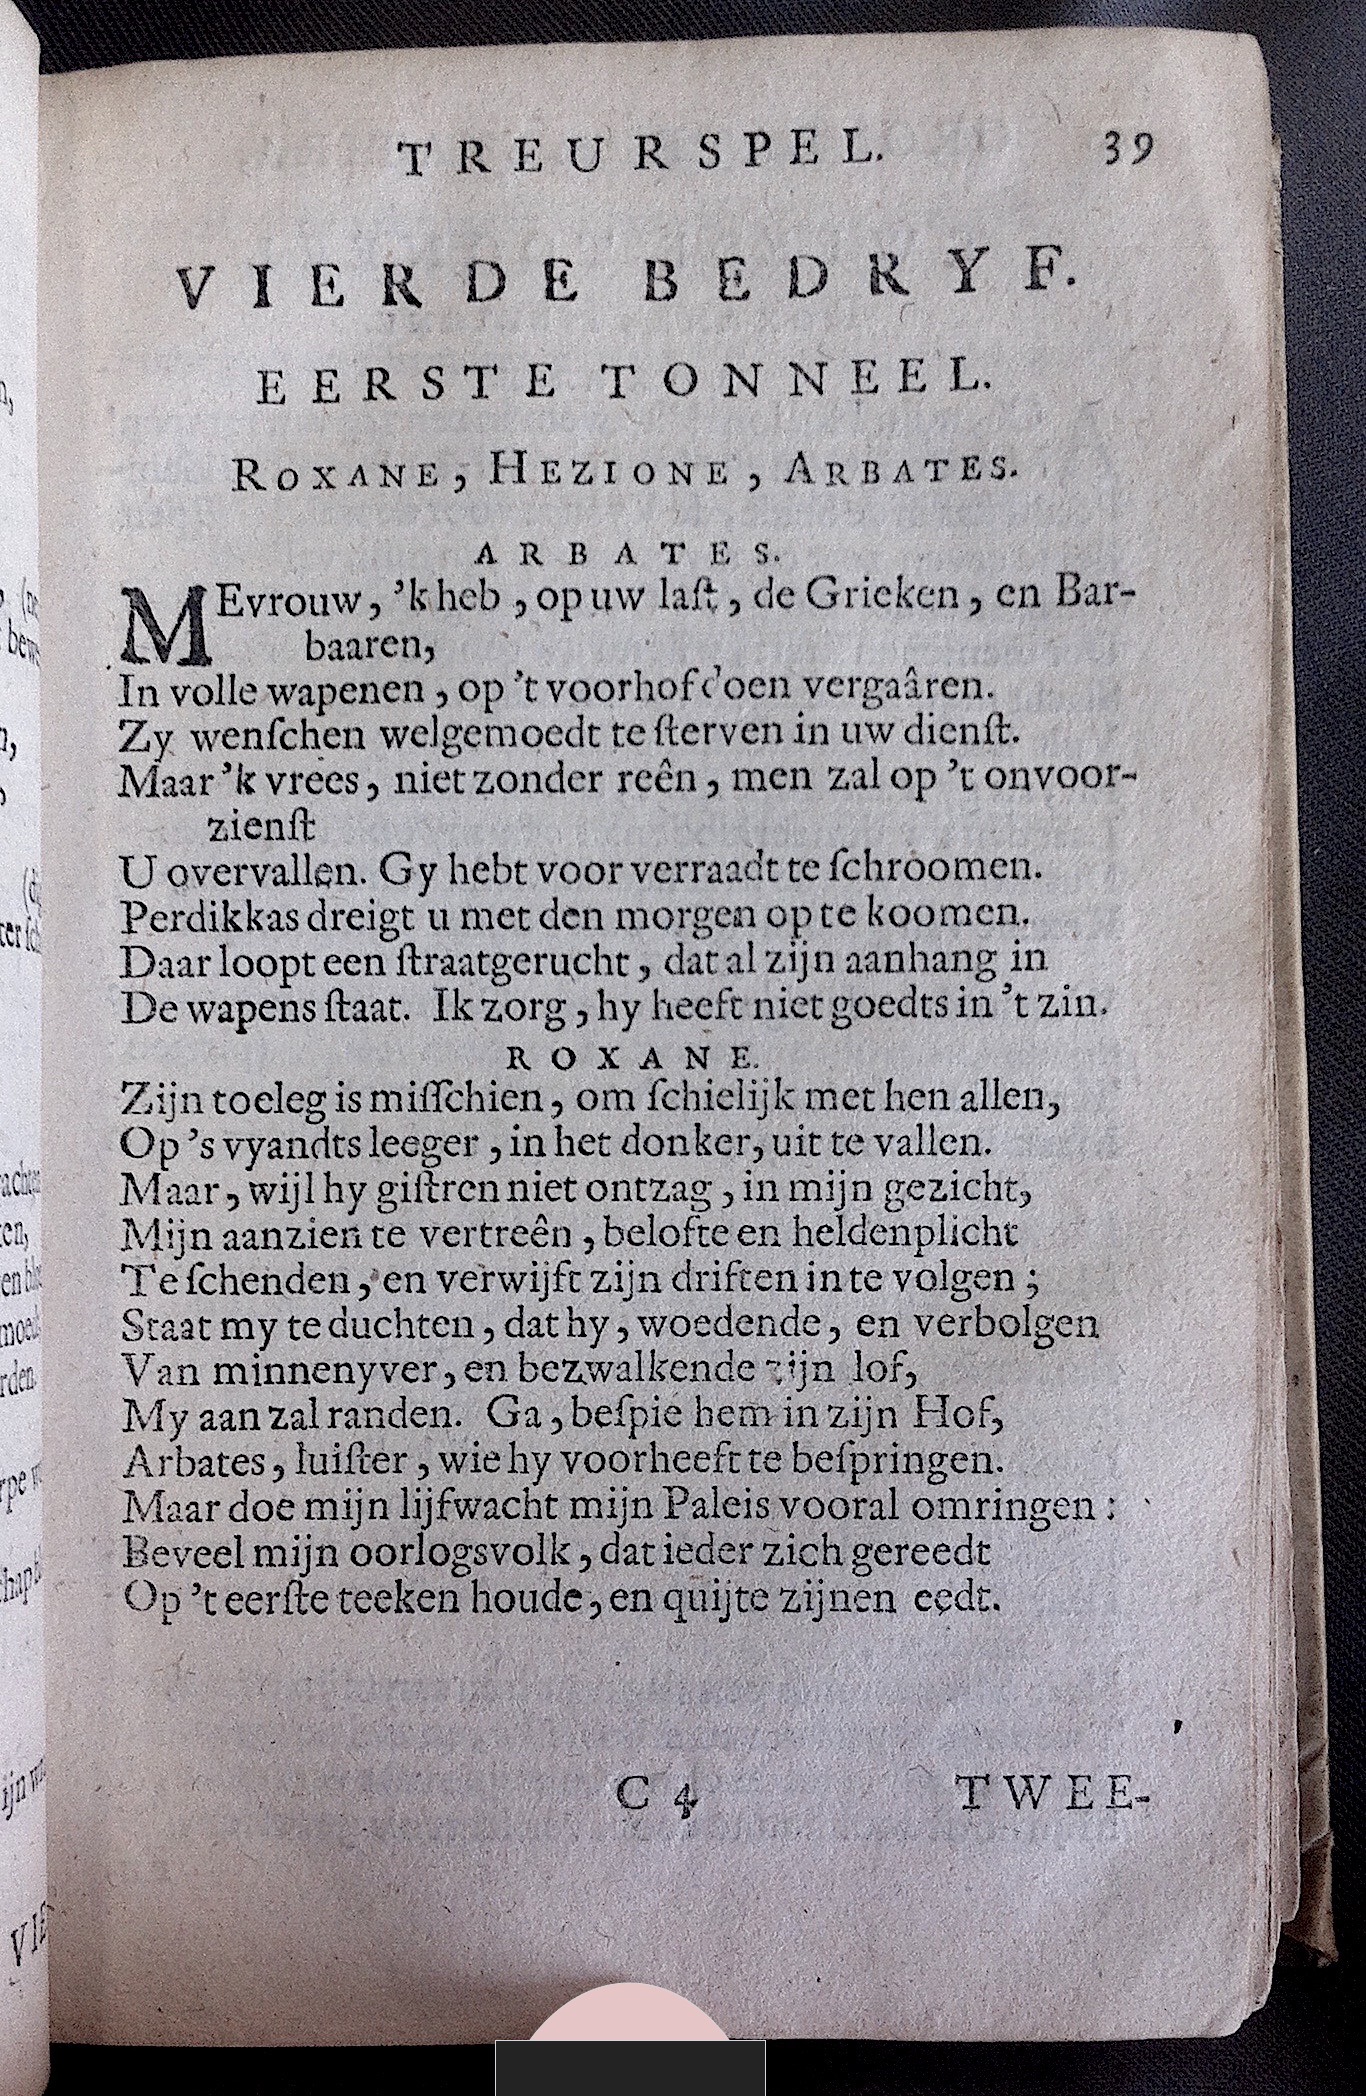 TREURSPEL. 39
VIERDE BEDRYF.
EERSTE TONNEEL.
ROXANE, HEZIONE, ARBATES.
ARBATES.
MEvrouw, ’k heb, op uw laſt, de Grieken, en Bar-
baaren,
In volle wapenen, op ’t voorhof doen vergaâren.
Zy wenſchen welgemoedt te ſterven in uw dienſt.
Maar ’k vrees, niet zonder reên, men zal op ’t onvoor-
zienſt
U overvallen. Gy hebt voor verraadt te ſchroomen.
Perdikkas dreigt u met den morgen op te koomen.
Daar loopt een ſtraatgerucht, dat al zijn aanhang in
De wapens ſtaat. Ik zorg, hy heeft niet goedts in ’t zin.
ROXANE.
Zijn toeleg is miſſchien, om ſchielijk met hen allen,
Op ’s vyandts leeger, in het donker, uit te vallen.
Maar, wijl hy giſtren niet ontzag, in mijn gezicht,
Mijn aanzien te vertreên, belofte en heldenplicht
Te ſchenden, en verwijft zijn driften in te volgen;
Staat my te duchten, dat hy, woedende, en verbolgen
Van minnenyver, en bezwalkende zijn lof,
My aan zal randen. Ga, beſpie hem in zijn Hof,
Arbates, luiſter, wie hy voorheeft te beſpringen.
Maar doe mijn lijfwacht mijn Paleis vooral omringen:
Beveel mijn oorlogsvolk, dat ieder zich gereedt
Op ’t eerſte teeken houde, en quijte zijnen eedt.
C 4 TWEE-